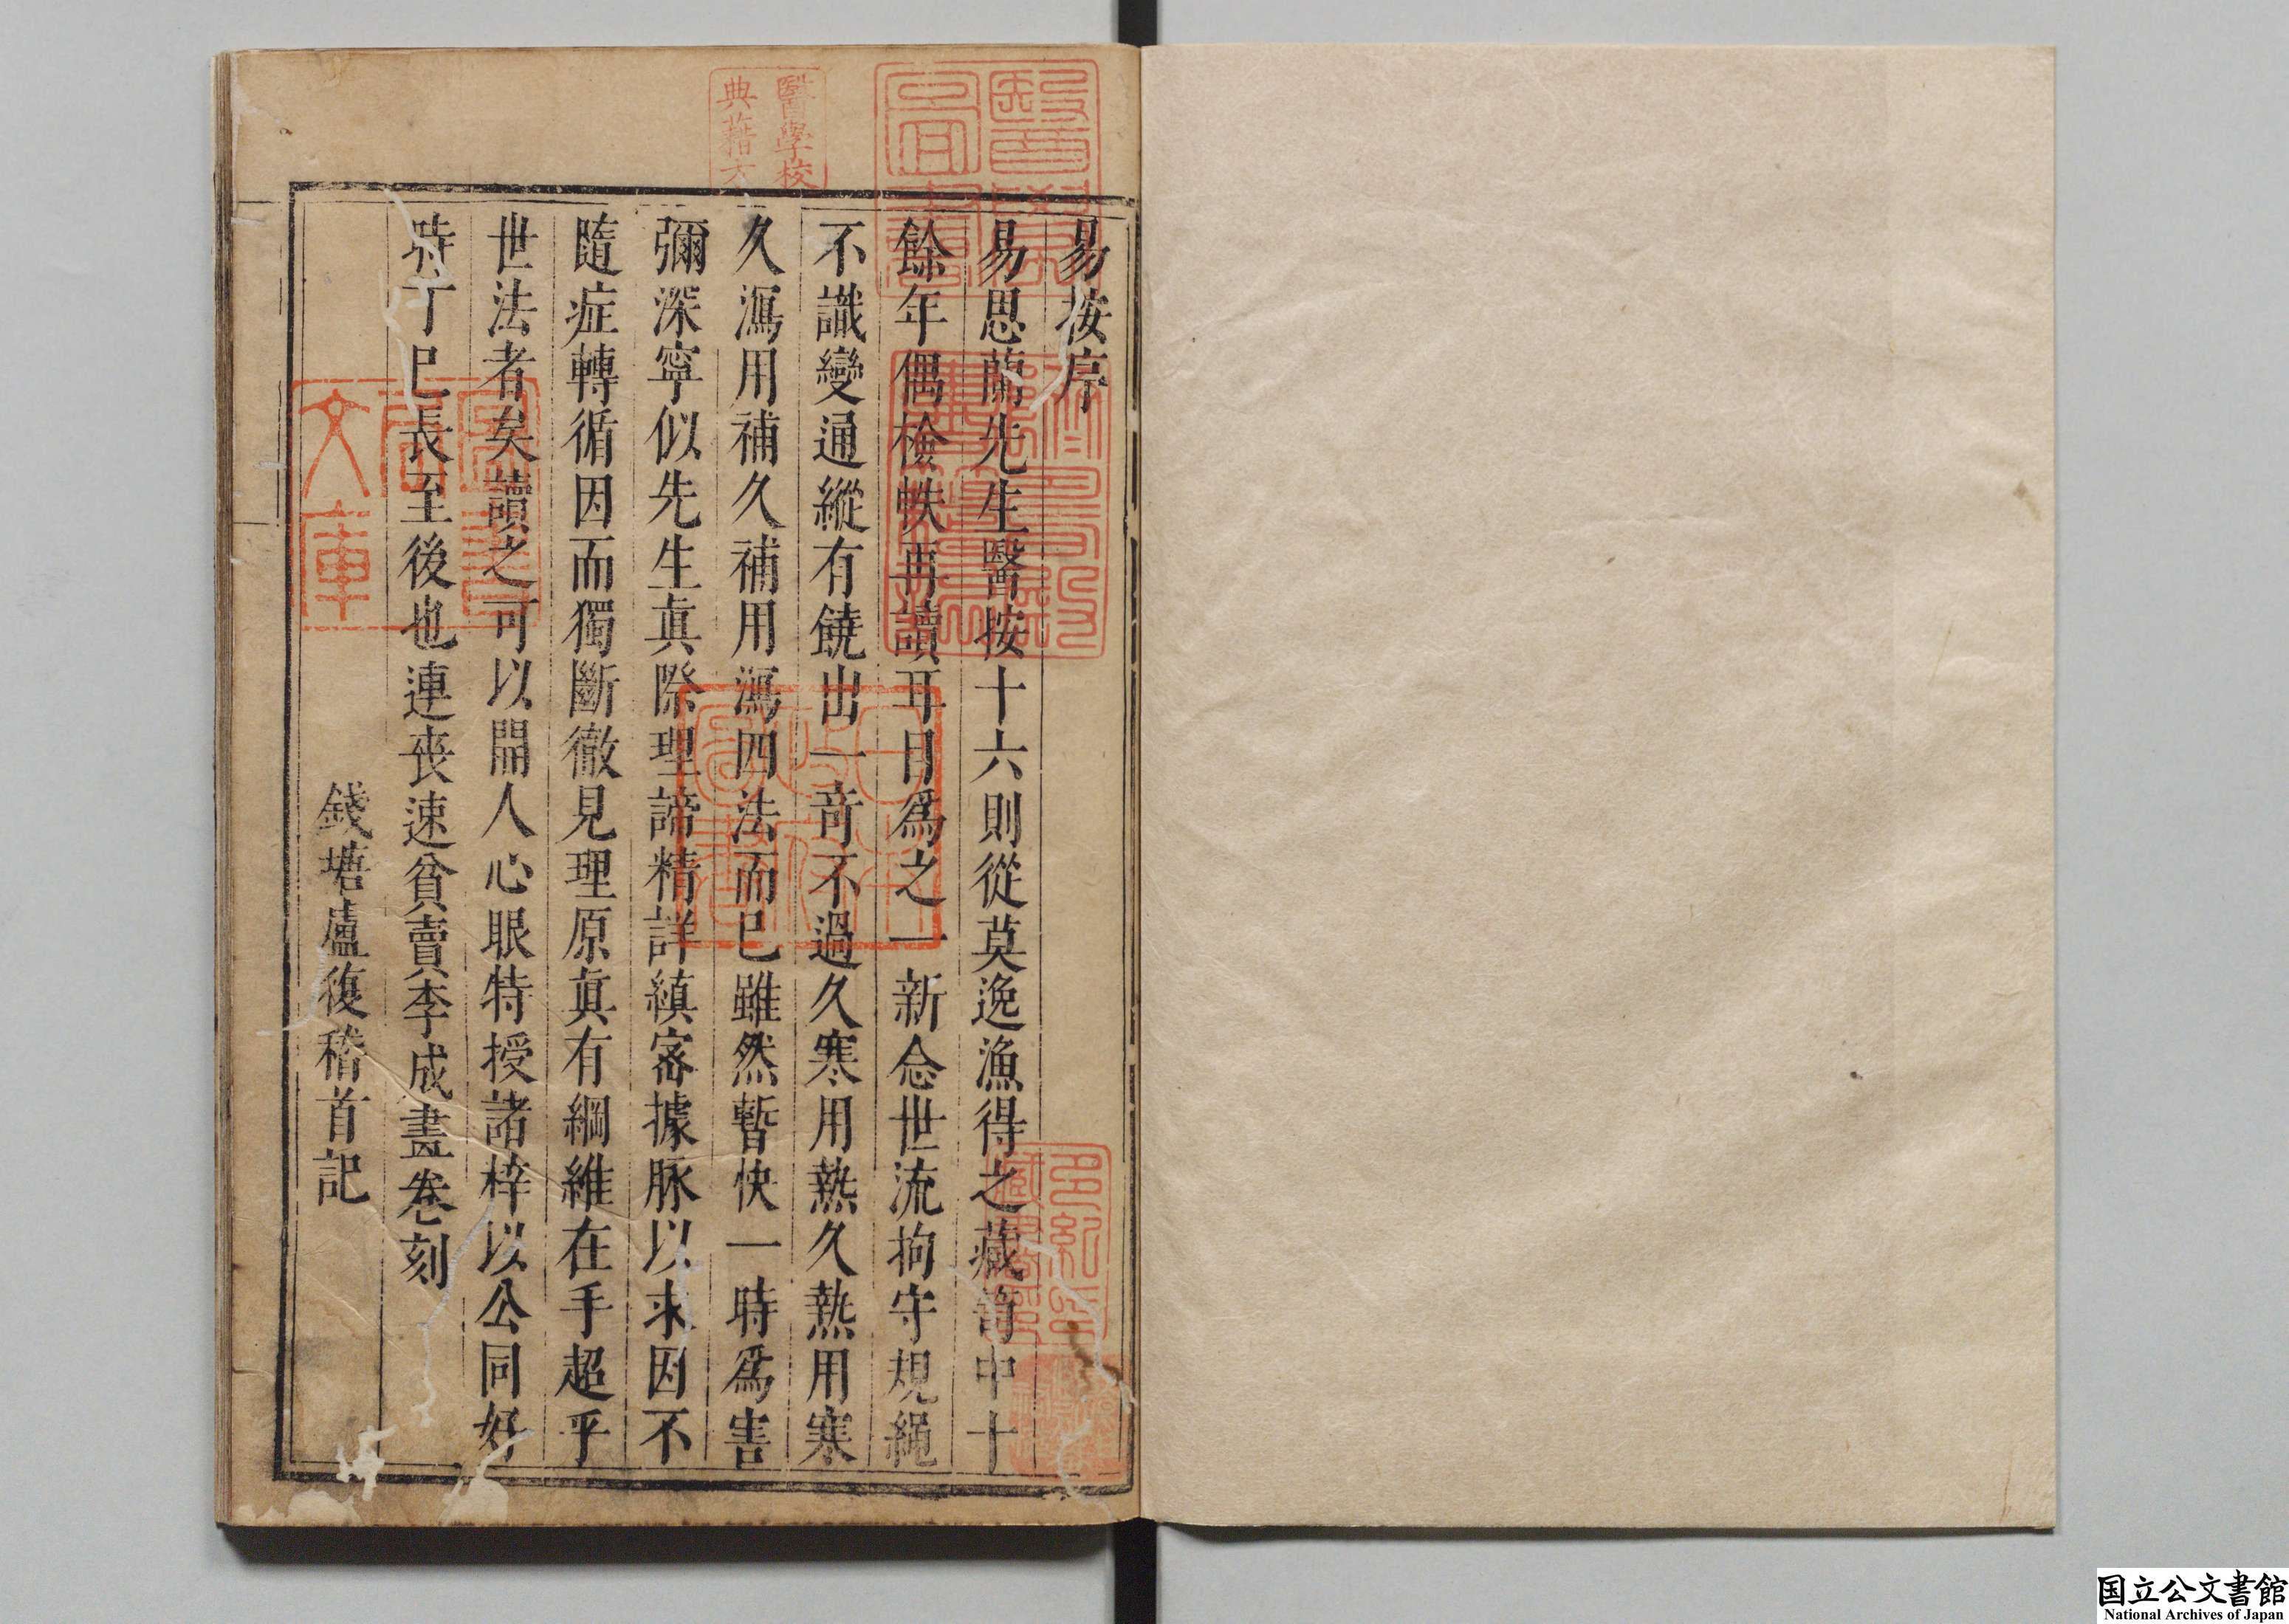 易按序
易思蘭先生醫按十六則從莫逸漁得之藏笥中十
餘年偶檢帙再讀耳目爲之一新念世流拘守規繩
不識變通縱有饒出一竒不過久寒用熱久熱用寒
久瀉用補久補用瀉四法而已雖然暫快一時爲害
彌深寧似先生眞際理諦精詳縝宻據脉以求因不
隨症轉循因而獨斷徹見理原眞有綱維在手超乎
世法者矣讀之可以開人心眼特授諸梓以公同好
時丁巳長至後也連喪速貧賣李成畫卷刻
錢塘盧復稽首記
醫學校
典籍
日本
政府
圖書
多紀氏
藏書印
文庫
国立公文書館
National Archives of Japan